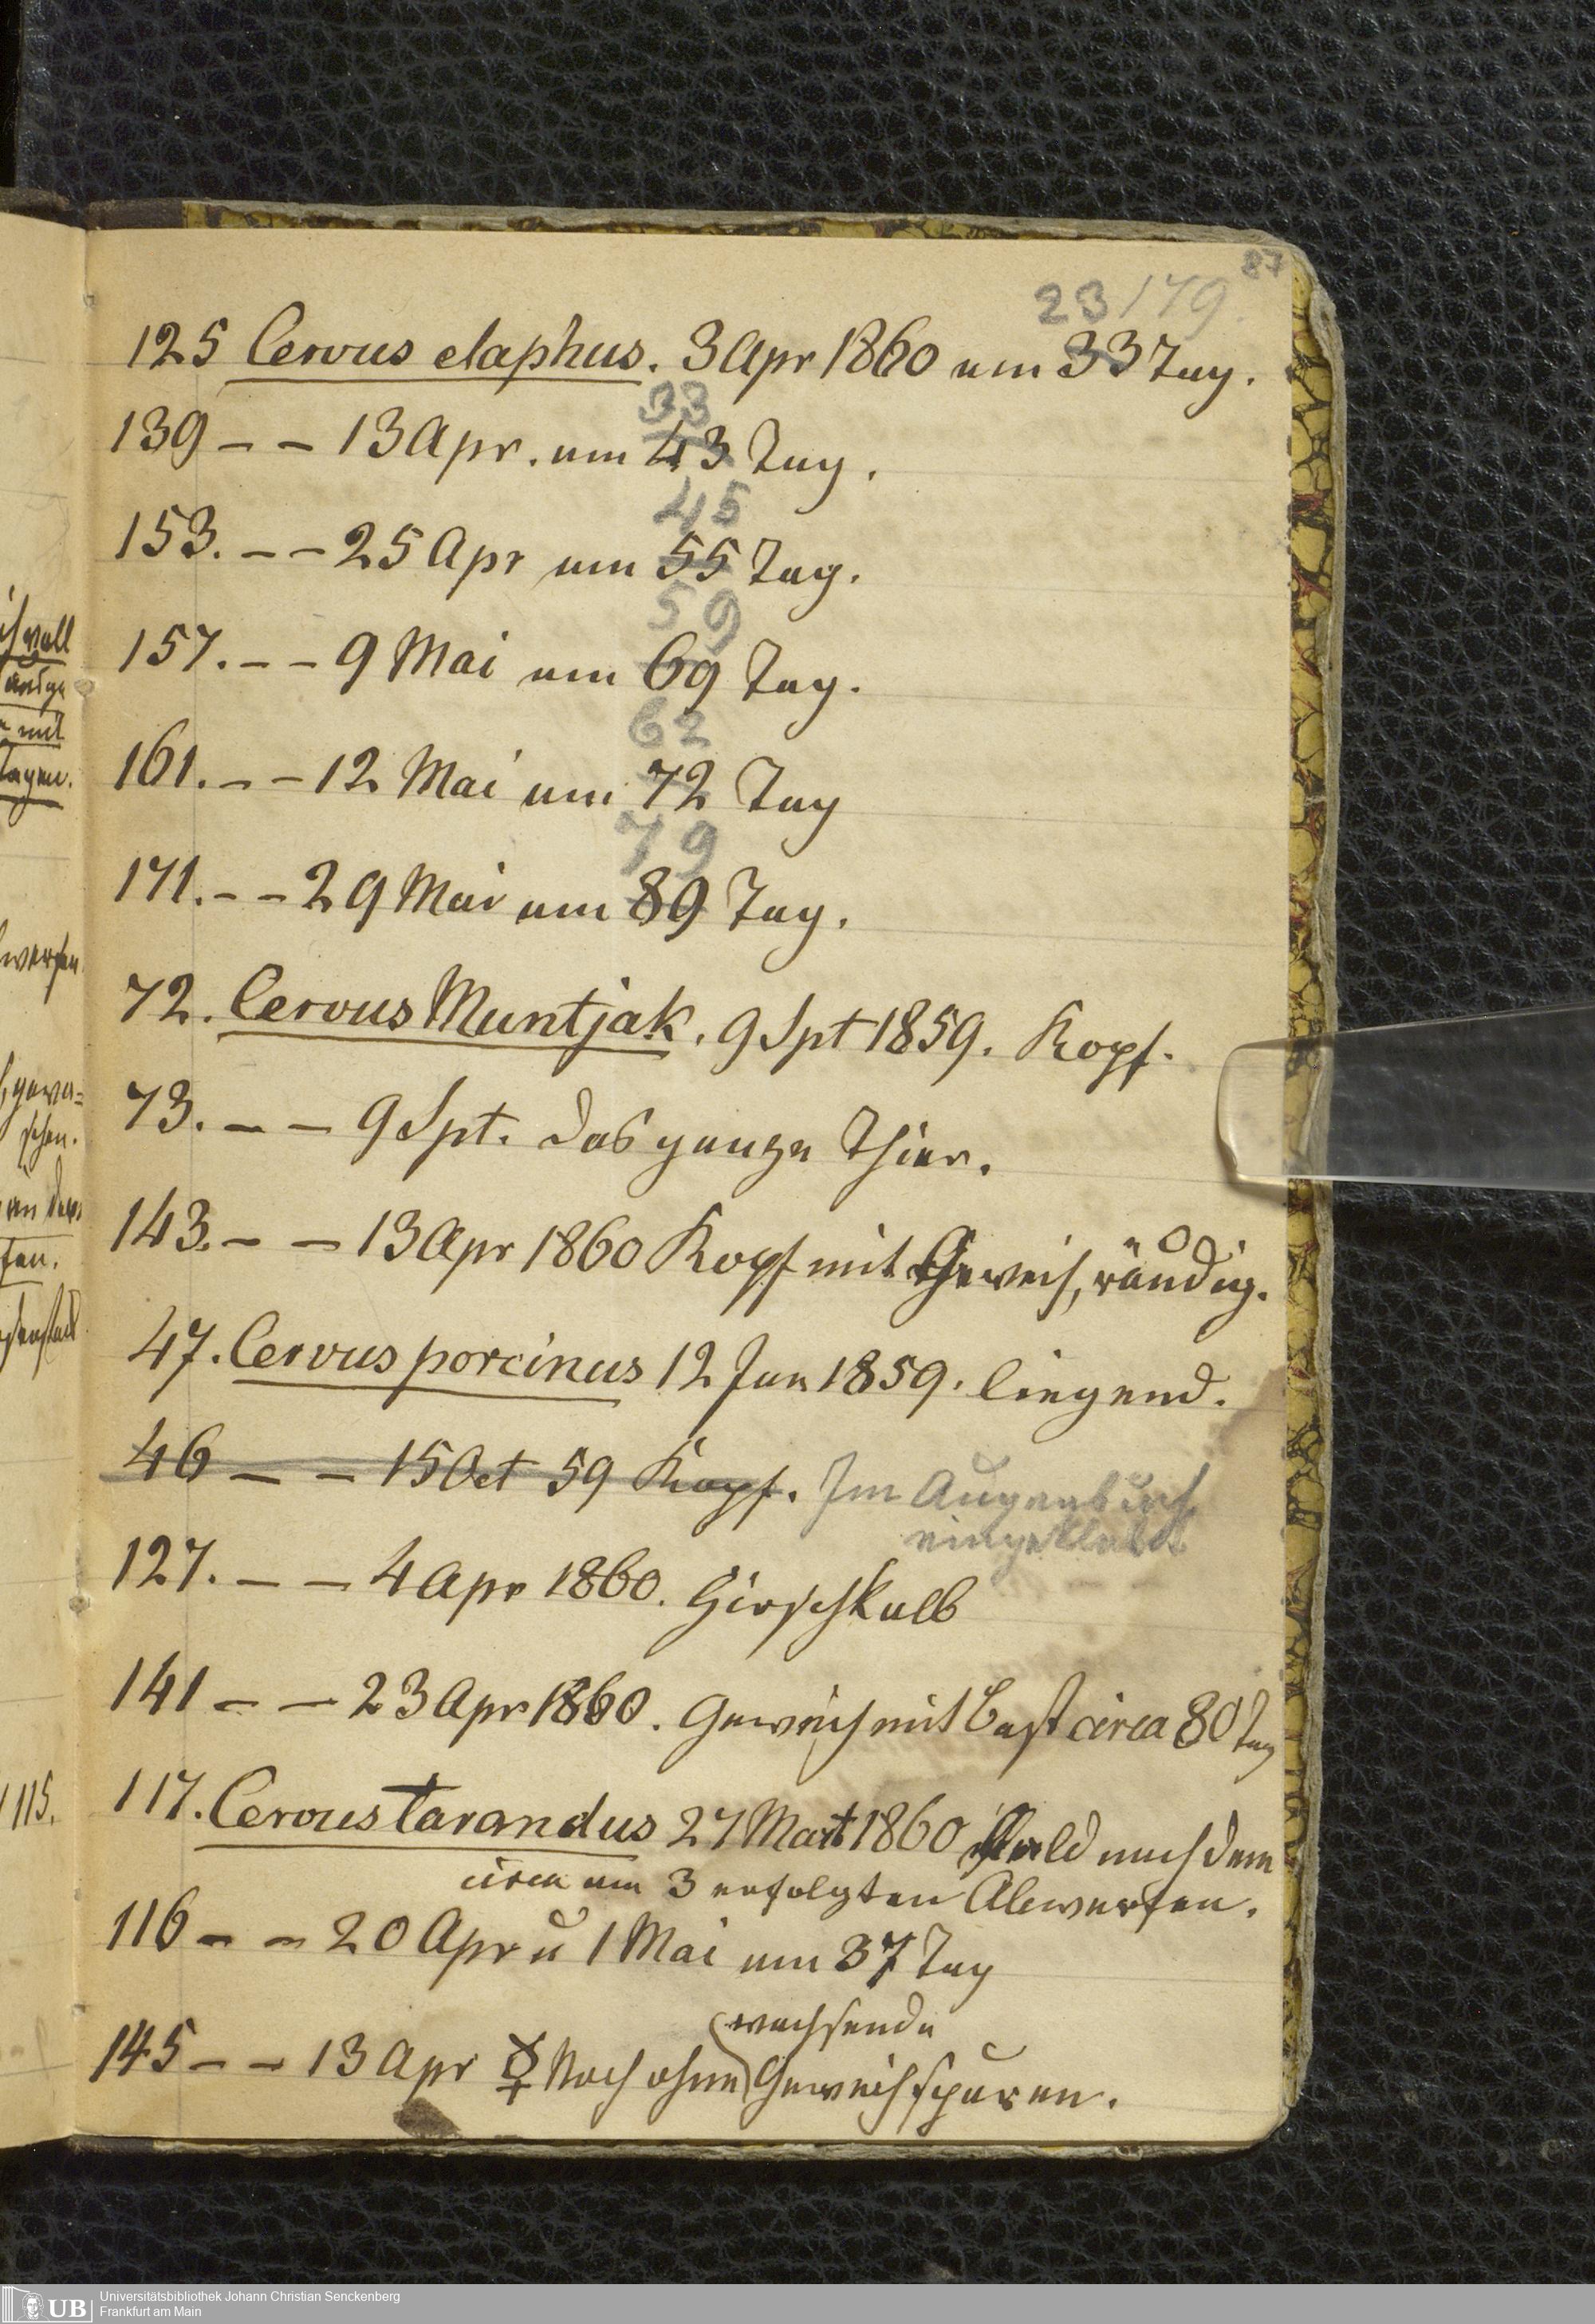 87
23 179.
125 Cervus elaphus. 3 Apr 1860 am 33 Tag.
33
139 – – 13 Apr. am 43 Tag.
45
153. – – 25 Apr am 55 Tag.
59
157. – – 9 Mai am 69 Tag.
62
161. – – 12 Mai am 72 Tag
79
171. – – 29 Mai am 89 Tag.
72. Cervus Muntjak. 9 Spt 1859. Kopf.
73. – – 9 Spt. das ganze Thier.
143. – – 13 Apr 1860 Kopf mit Geweih, räudig.
47. Cervus porcinus 12 Jun 1859. liegend.
46 – – 15 Oct 59 Kopf. Im Augenbuch
eingeklebt
127. – – 4 Apr 1860. Hirschkalb
141 – – 23 Apr 1860. Geweih mit Bast circa 80 Tag
117. Cervus tarandus 27 Mart 1860 bald nach dem
circa am 3 erfolgten Abwerfen.
116 – – 20 Apr u 1 Mai am 37 Tag
wachsende
145 – – 13 Apr ☿ Noch ohne Geweihspuren.
115.
Universitätsbibliothek Johann Christian Senckenberg
UB Frankfurt am Main